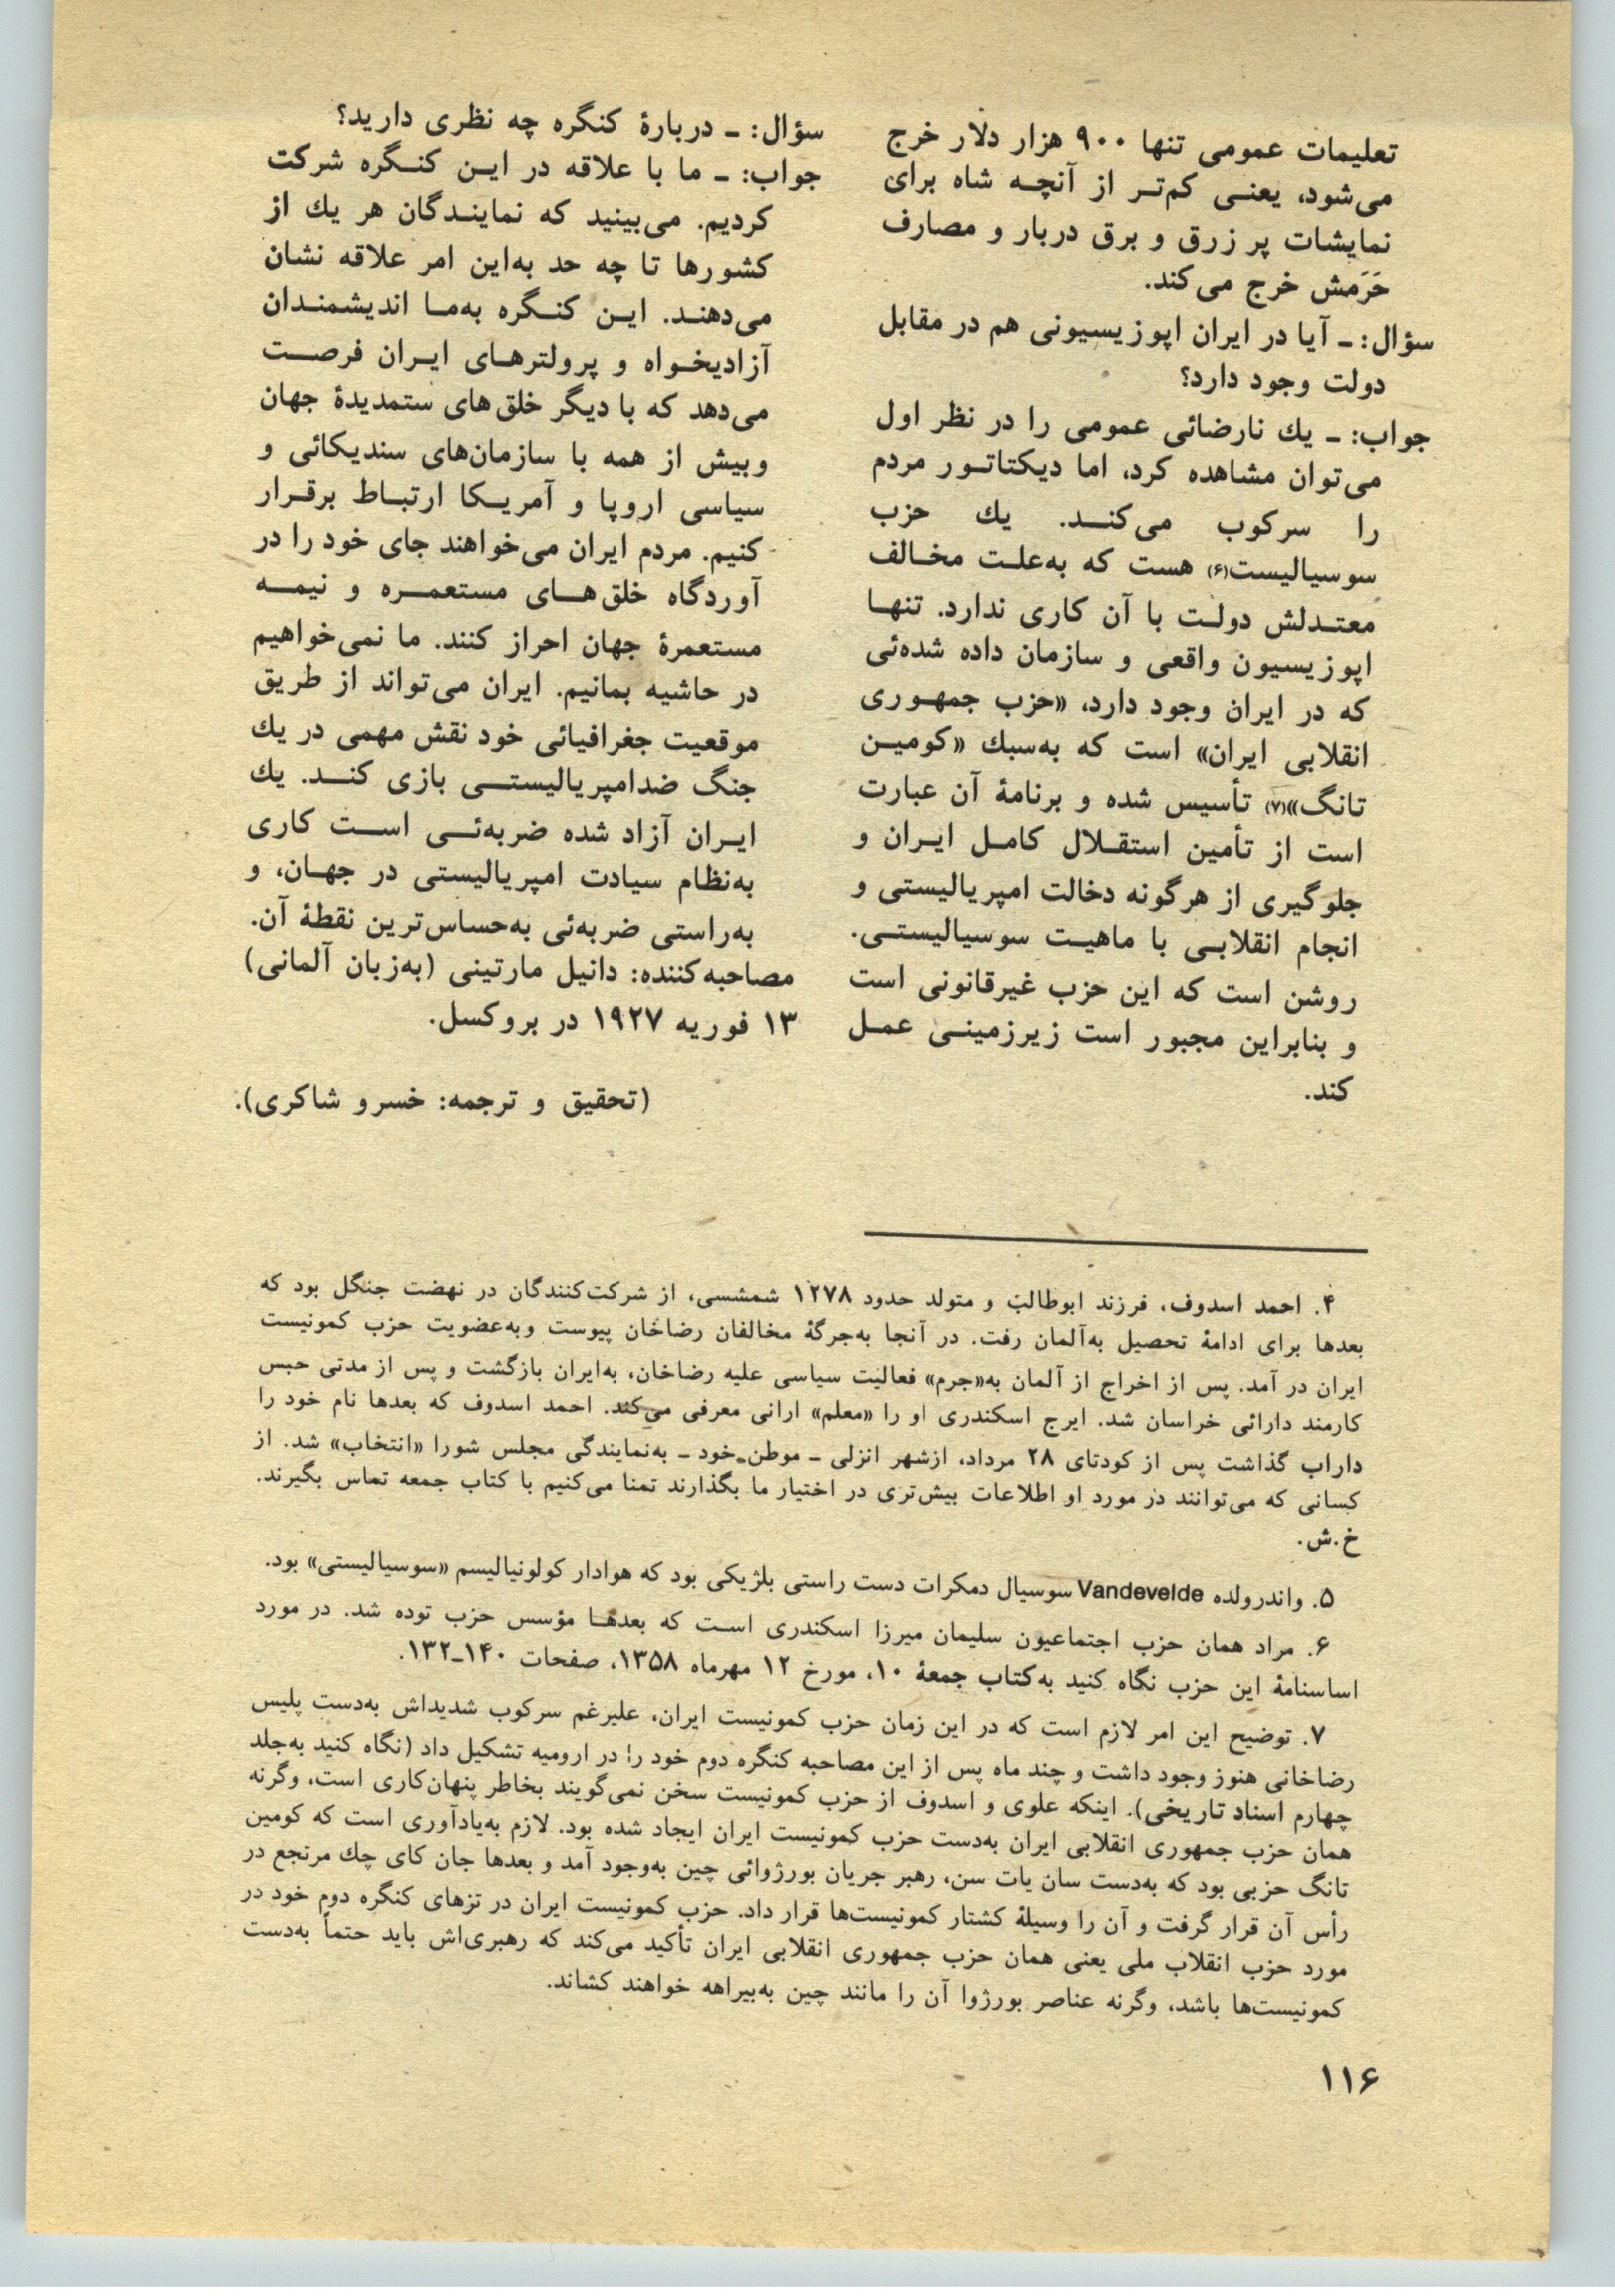 تعلیمات عمومی تنها ۹۰۰ هزار دلار خرج
می‌شود، یعنی کم‌تر از آنچه شاه برای
نمایشات پر زرق و برق دربار و مصارف
حَرَمش خرج می‌کند.
سؤال: ـ آیا در ایران اپوزیسیونی هم در مقابل
دولت وجود دارد؟
جواب: ـ یك نارضائی عمومی را در نظر اول
می‌توان مشاهده کرد، اما دیکتاتور مردم
را سرکوب می‌کند. یك حزب
سوسیالیست(۶) هست که به‌علت مخالف
معتدلش دولت با آن کاری ندارد. تنها
اپوزیسیون واقعی و سازمان داده شده‌ئی
که در ایران وجود دارد، «حزب جمهوری
انقلابی ایران» است که به‌سبك «کومین
تانگ»(۷) تأسیس شده و برنامهٔ آن عبارت
است از تأمین استقلال کامل ایران و
جلوگیری از هرگونه دخالت امپریالیستی و
انجام انقلابی با ماهیت سوسیالیستی.
روشن است که این حزب غیرقانونی است
و بنابراین مجبور است زیرزمینی عمل
کند.
سؤال: ـ دربارهٔ کنگره چه نظری دارید؟
جواب: ـ ما با علاقه در این کنگره شرکت
کردیم. می‌بینید که نمایندگان هر یك از
کشورها تا چه حد به‌این امر علاقه نشان
می‌دهند. این کنگره به‌ما اندیشمندان
آزادیخواه و پرولترهای ایران فرصت
می‌دهد که با دیگر خلق‌های ستمدیدهٔ جهان
وبیش از همه با سازمان‌های سندیکائی و
سیاسی اروپا و آمریکا ارتباط برقرار
کنیم. مردم ایران می‌خواهند جای خود را در
آوردگاه خلق‌های مستعمره و نیمه
مستعمرهٔ جهان احراز کنند. ما نمی‌خواهیم
در حاشیه بمانیم. ایران می‌تواند از طریق
موقعیت جغرافیائی خود نقش مهمی در یك
جنگ ضدامپریالیستی بازی کند. یك
ایران آزاد شده ضربه‌ئی است کاری
به‌نظام سیادت امپریالیستی در جهان، و
به‌راستی ضربه‌ئی به‌حساس‌ترین نقطهٔ آن.
مصاحبه‌کننده: دانیل مارتینی (به‌زبان آلمانی)
۱۳ فوریه ۱۹۲۷ در بروکسل.
(تحقیق و ترجمه: خسرو شاکری).
۴. احمد اسدوف، فرزند ابوطالب و متولد حدود ۱۲۷۸ شمشسی، از شرکت‌کنندگان در نهضت جنگل بود که
بعدها برای ادامهٔ تحصیل به‌آلمان رفت. در آنجا به‌جرگهٔ مخالفان رضاخان پیوست وبه‌عضویت حزب کمونیست
ایران در آمد. پس از اخراج از آلمان به«جرم» فعالیت سیاسی علیه رضاخان، به‌ایران بازگشت و پس از مدتی حبس
کارمند دارائی خراسان شد. ایرج اسکندری او را «معلم» ارانی معرفی می‌کند. احمد اسدوف که بعدها نام خود را
داراب گذاشت پس از کودتای ۲۸ مرداد، ازشهر انزلی ـ موطن خود ـ به‌نمایندگی مجلس شورا «انتخاب» شد. از
کسانی که می‌توانند در مورد او اطلاعات بیش‌تری در اختیار ما بگذارند تمنا می‌کنیم با کتاب جمعه تماس بگیرند.
خ.ش.
۵. واندرولده Vandevelde سوسیال دمکرات دست راستی بلژیکی بود که هوادار کولونیالیسم «سوسیالیستی» بود.
۶. مراد همان حزب اجتماعیون سلیمان میرزا اسکندری است که بعدها مؤسس حزب توده شد. در مورد
اساسنامهٔ این حزب نگاه کنید به‌کتاب جمعهٔ ۱۰، مورخ ۱۲ مهرماه ۱۳۵۸، صفحات ۱۴۰ـ۱۳۲.
۷. توضیح این امر لازم است که در این زمان حزب کمونیست ایران، علیرغم سرکوب شدیداش به‌دست پلیس
رضاخانی هنوز وجود داشت و چند ماه پس از این مصاحبه کنگره دوم خود را در ارومیه تشکیل داد (نگاه کنید به‌جلد
چهارم اسناد تاریخی). اینکه علوی و اسدوف از حزب کمونیست سخن نمی‌گویند بخاطر پنهان‌کاری است، وگرنه
همان حزب جمهوری انقلابی ایران به‌دست حزب کمونیست ایران ایجاد شده بود. لازم به‌یادآوری است که کومین
تانگ حزبی بود که به‌دست سان یات سن، رهبر جریان بورژوائی چین به‌وجود آمد و بعدها جان کای چك مرتجع در
رأس آن قرار گرفت و آن را وسیلهٔ کشتار کمونیست‌ها قرار داد. حزب کمونیست ایران در تزهای کنگره دوم خود در
مورد حزب انقلاب ملی یعنی همان حزب جمهوری انقلابی ایران تأکید می‌کند که رهبری‌اش باید حتماً به‌دست
کمونیست‌ها باشد، وگرنه عناصر بورژوا آن را مانند چین به‌بیراهه خواهند کشاند.
۱۱۶